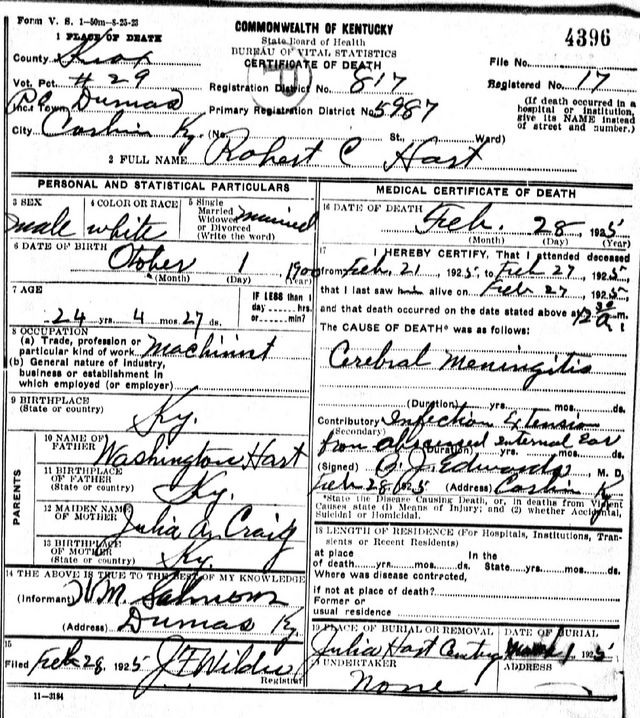 Form V. S. 1-50m-8-25-23
COMMONWEALTH OF KENTUCKY
State Board of Health
BUREAU OF VITAL STATISTICS
CERTIFICATE OF DEATH
4396
File No.
1 PLACE OF DEATH
County Knox
Vot. Pct. #29
Registration District No. 817
Registered No. 17
Inc. Town Dumas
Primary Registration District No. 5987
(If death occurred in a hospital or institution, give its NAME instead of street and number.)
City Corbin Ky (No. St., Ward)
2 FULL NAME Robert C Hart
PERSONAL AND STATISTICAL PARTICULARS
3 SEX male
4 COLOR OR RACE white
5 Single Married Widowed or Divorced (Write the word) married
6 DATE OF BIRTH Otober 1 1900
(Month) (Day) (Year)
7 AGE
24 yrs. 4 mos. 27 ds.
IF LESS than 1 day hrs. or min?
8 OCCUPATION
(a) Trade, profession or particular kind of work Machinist
(b) General nature of industry, business or establishment in which employed (or employer)
9 BIRTHPLACE
(State or country) Ky.
PARENTS
10 NAME OF FATHER Washington Hart
11 BIRTHPLACE OF FATHER (State or country) Ky.
12 MAIDEN NAME OF MOTHER Julia A. Craig
13 BIRTHPLACE OF MOTHER (State or country) Ky.
14 THE ABOVE IS TRUE TO THE BEST OF MY KNOWLEDGE
(Informant) M. Salmons
(Address) Dumas Ky.
15
Filed Feb 28, 1925 J F Wilder
Registrar
11-3184
MEDICAL CERTIFICATE OF DEATH
16 DATE OF DEATH Feb. 28, 1925
(Month) (Day) (Year)
17 I HEREBY CERTIFY, That I attended deceased
from Feb. 21, 1925, to Feb 27, 1925,
that I last saw him alive on Feb 27, 1925,
and that death occurred on the date stated above at m.
The CAUSE OF DEATH* was as follows:
Cerebral Meningitis
(Duration) yrs. mos. ds.
Contributory Infection Extension
(Secondary) from abscessed Internal Ear
(Duration) yrs. mos. ds.
(Signed) J. Edwards, M. D.
Feb 28, 1925 (Address) Corbin Ky
*State the Disease Causing Death, or, in deaths from Violent
Causes state (1) Means of Injury; and (2) whether Accidental,
Suicidal or Homicidal.
18 LENGTH OF RESIDENCE (For Hospitals, Institutions, Transients or Recent Residents)
at place of death yrs. mos. ds. In the State yrs. mos. ds.
Where was disease contracted,
if not at place of death?
Former or usual residence
19 PLACE OF BURIAL OR REMOVAL
DATE OF BURIAL
Julia Hart
March 1, 1925
UNDERTAKER
ADDRESS
None